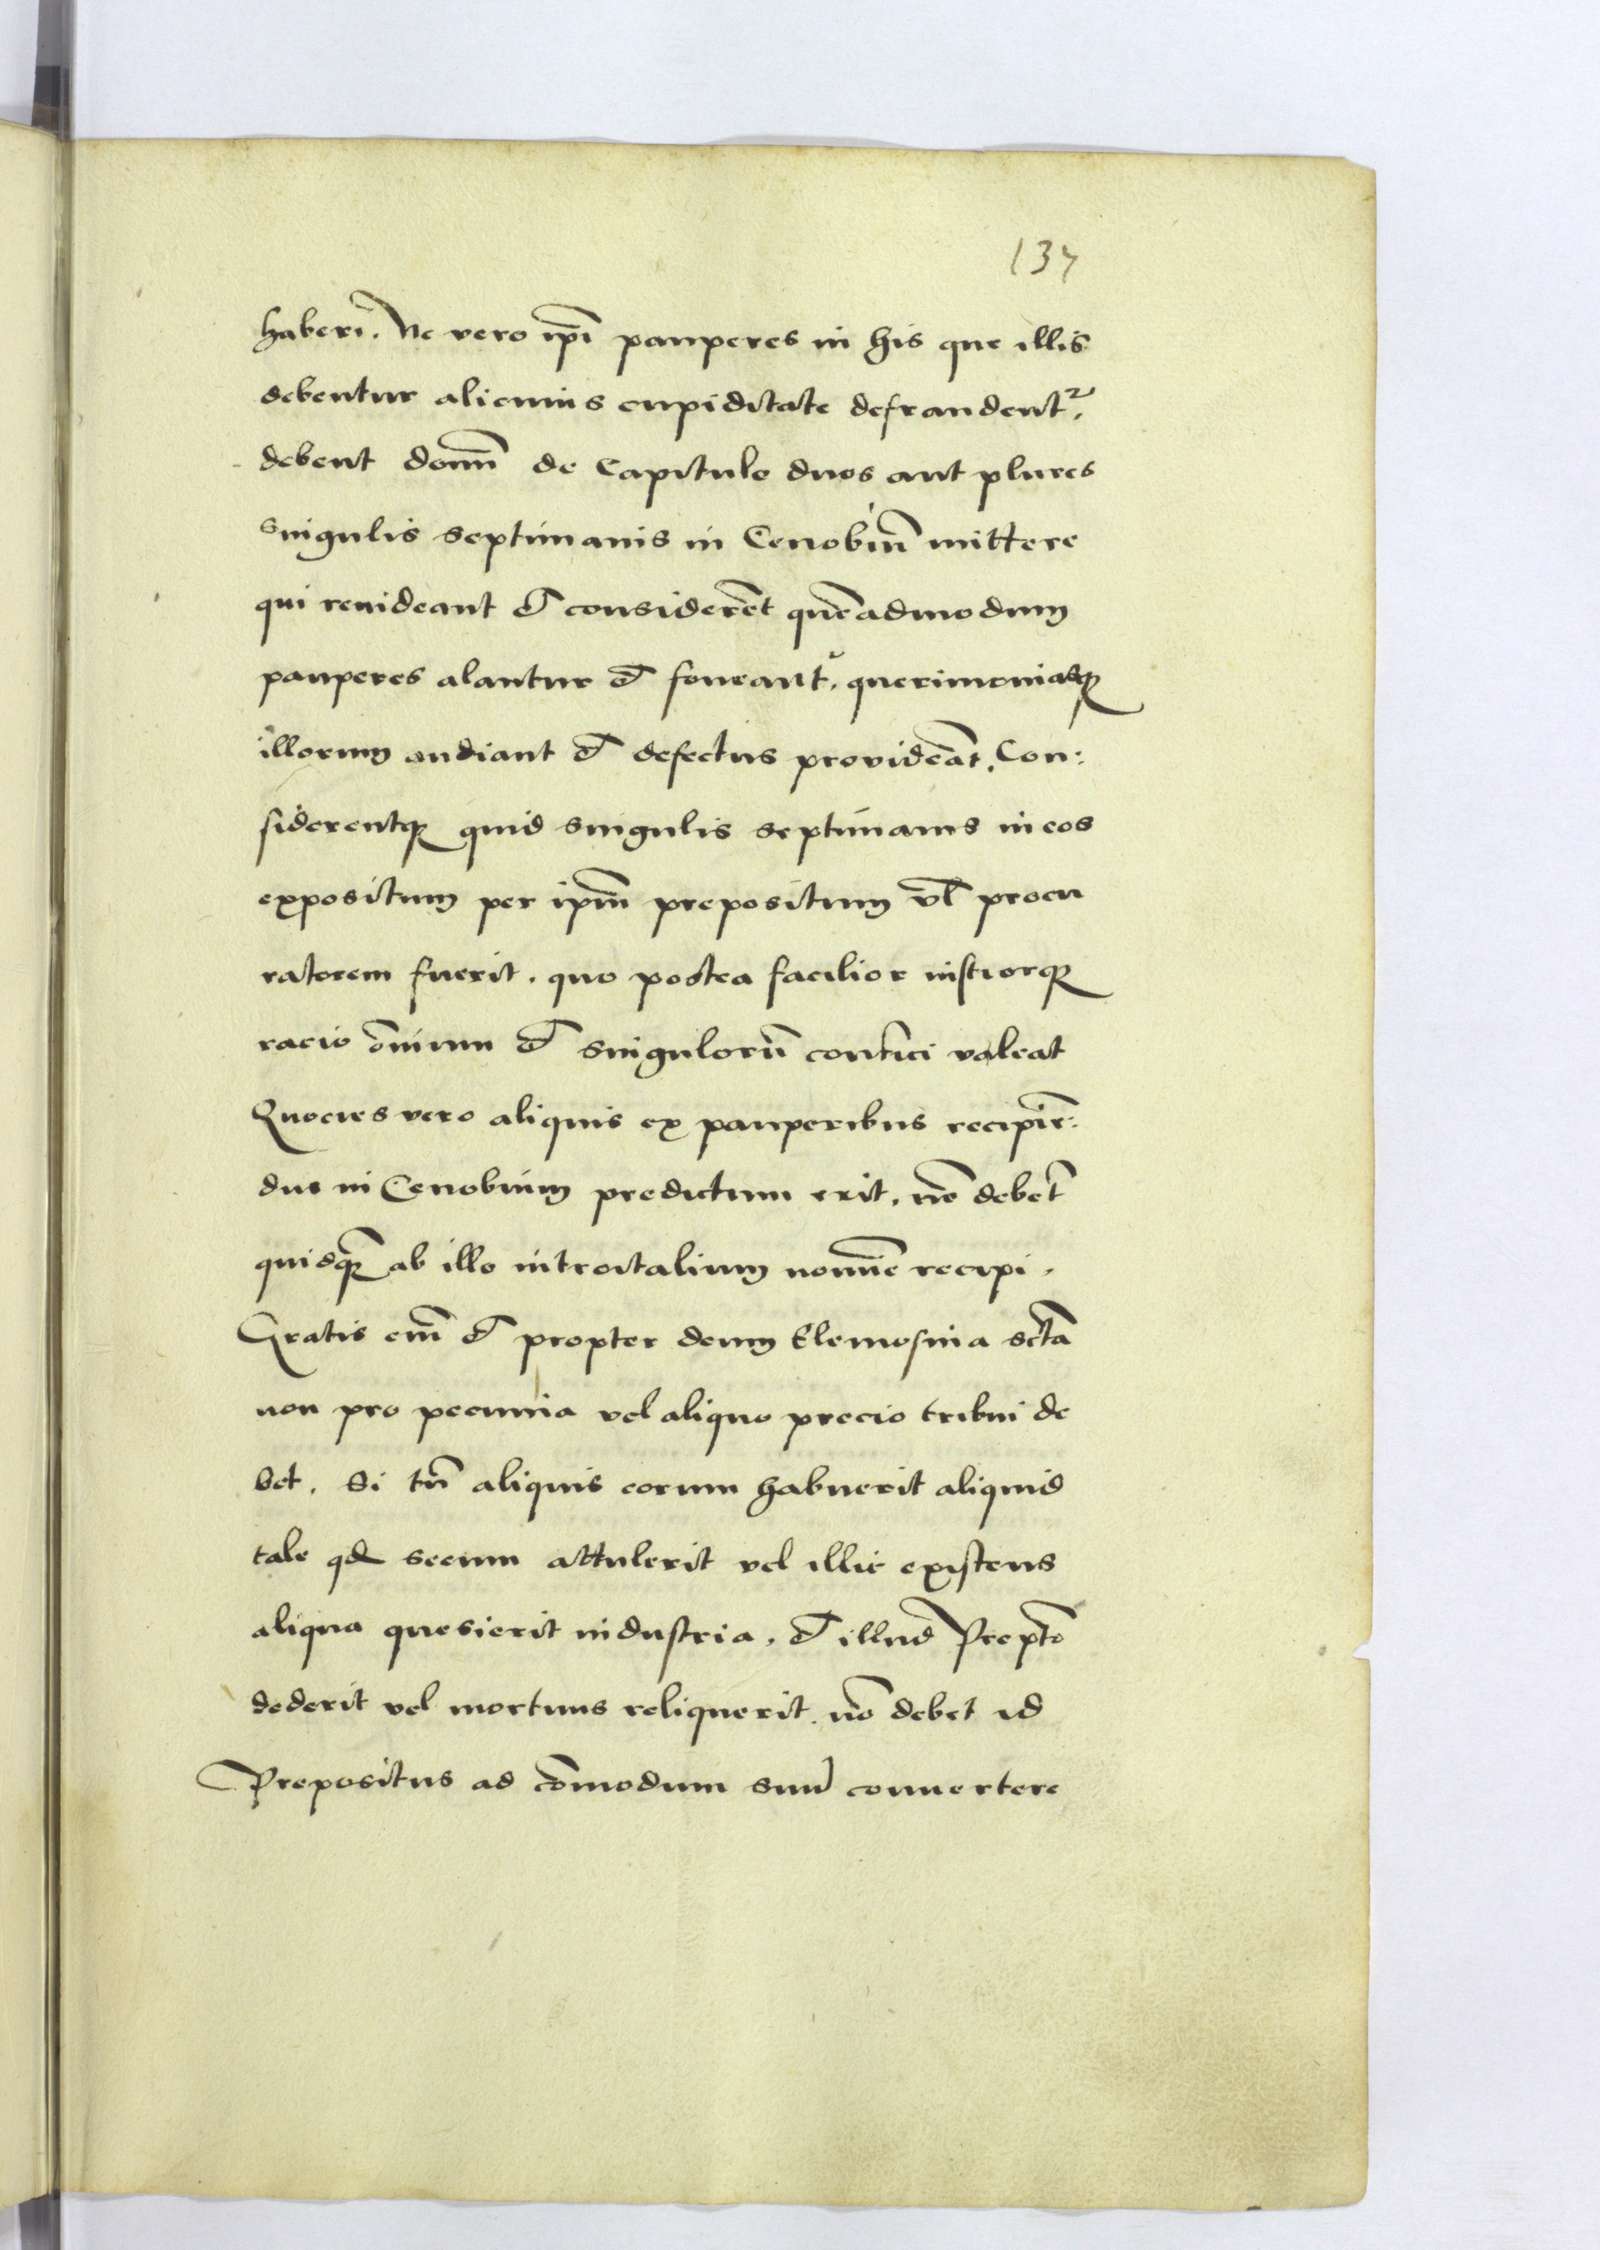 137
haberi. Ne vero ip̄i pauperes in his que illis
debentur alicuius cupiditate defraudent²,
debent domī de Capitulo duos aut plures
singulis septimanis in Cenobiū mittere
qui revideant et considerēt quēadmodum
pauperes alantur et foveant², querimoniasq̨
illorum audiant et defectus provideāt. Con:
siderentq̨ quid singulis septimanis in eos
expositum per ipm̄ prepositum vl̄ procu
ratorem fuerit. quo postea facilior iustiorq̨
racio om̄ium et singulorū conf̄ici valeat
Quocies vero aliquis ex pauperibus recipiē:
dus in Cenobium predictum erit. nō debet
quisq̄ ab illo introitalium nomīe recipi.
Gratis em̄ et propter deum Elemosina sctā
non pro pecunia vel aliquo precio tribui de
bet. Si tn̄ aliquis eorum habuerit aliquid
tale qd secum attulerit vel illic existens
aliqua quesierit industria. et illud Prepto
dederit vel mortuus reliquerit. nō debet id
Prepositus ad cōmodum suū convertere